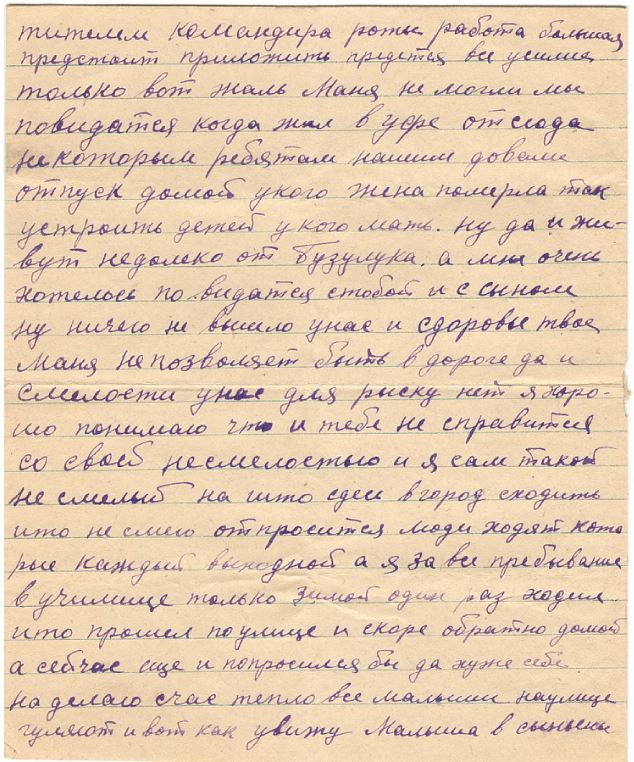 тителем командира роты работа большая
предстоит приложить предется все усилия
только вот жаль Маня не могли мы
повидатся когда жил в Уфе отсюда
некоторым ребятам нашим довали
отпуск домой укого жена померла так
устроить детей укого мать. ну да и жи-
вут недалеко от Бузулука. а мне очень
хотелось по видатся стобой и с сыном
ну ничего не вышло унас и сдоровье твое
Маня непозволяет быть в дороге да и
смелости унас для рыску нет я хоро-
шо понимаю что и тебе не справится
со своей несмелостью и я сам такой
не смелый на што сдеси вгород сходить
што не смею отпросится люди ходят кото
рые каждый выходной а я за все пребывание
в училище только зимой один раз ходил
што прошел поулице и скоре обратно домой
а сейчас еще и попросился бы да хуже себе
наделаю счас тепло все малыши наулице
гуляют и вот как увижу малыша в